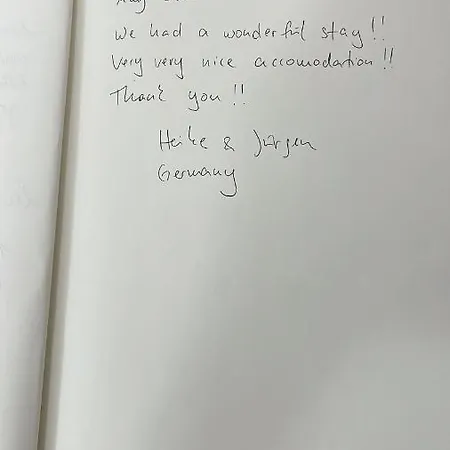 We had a wonderful stay!!
Very very nice accomodation!!
Thank you!!
Heike & Jürgen
Germany